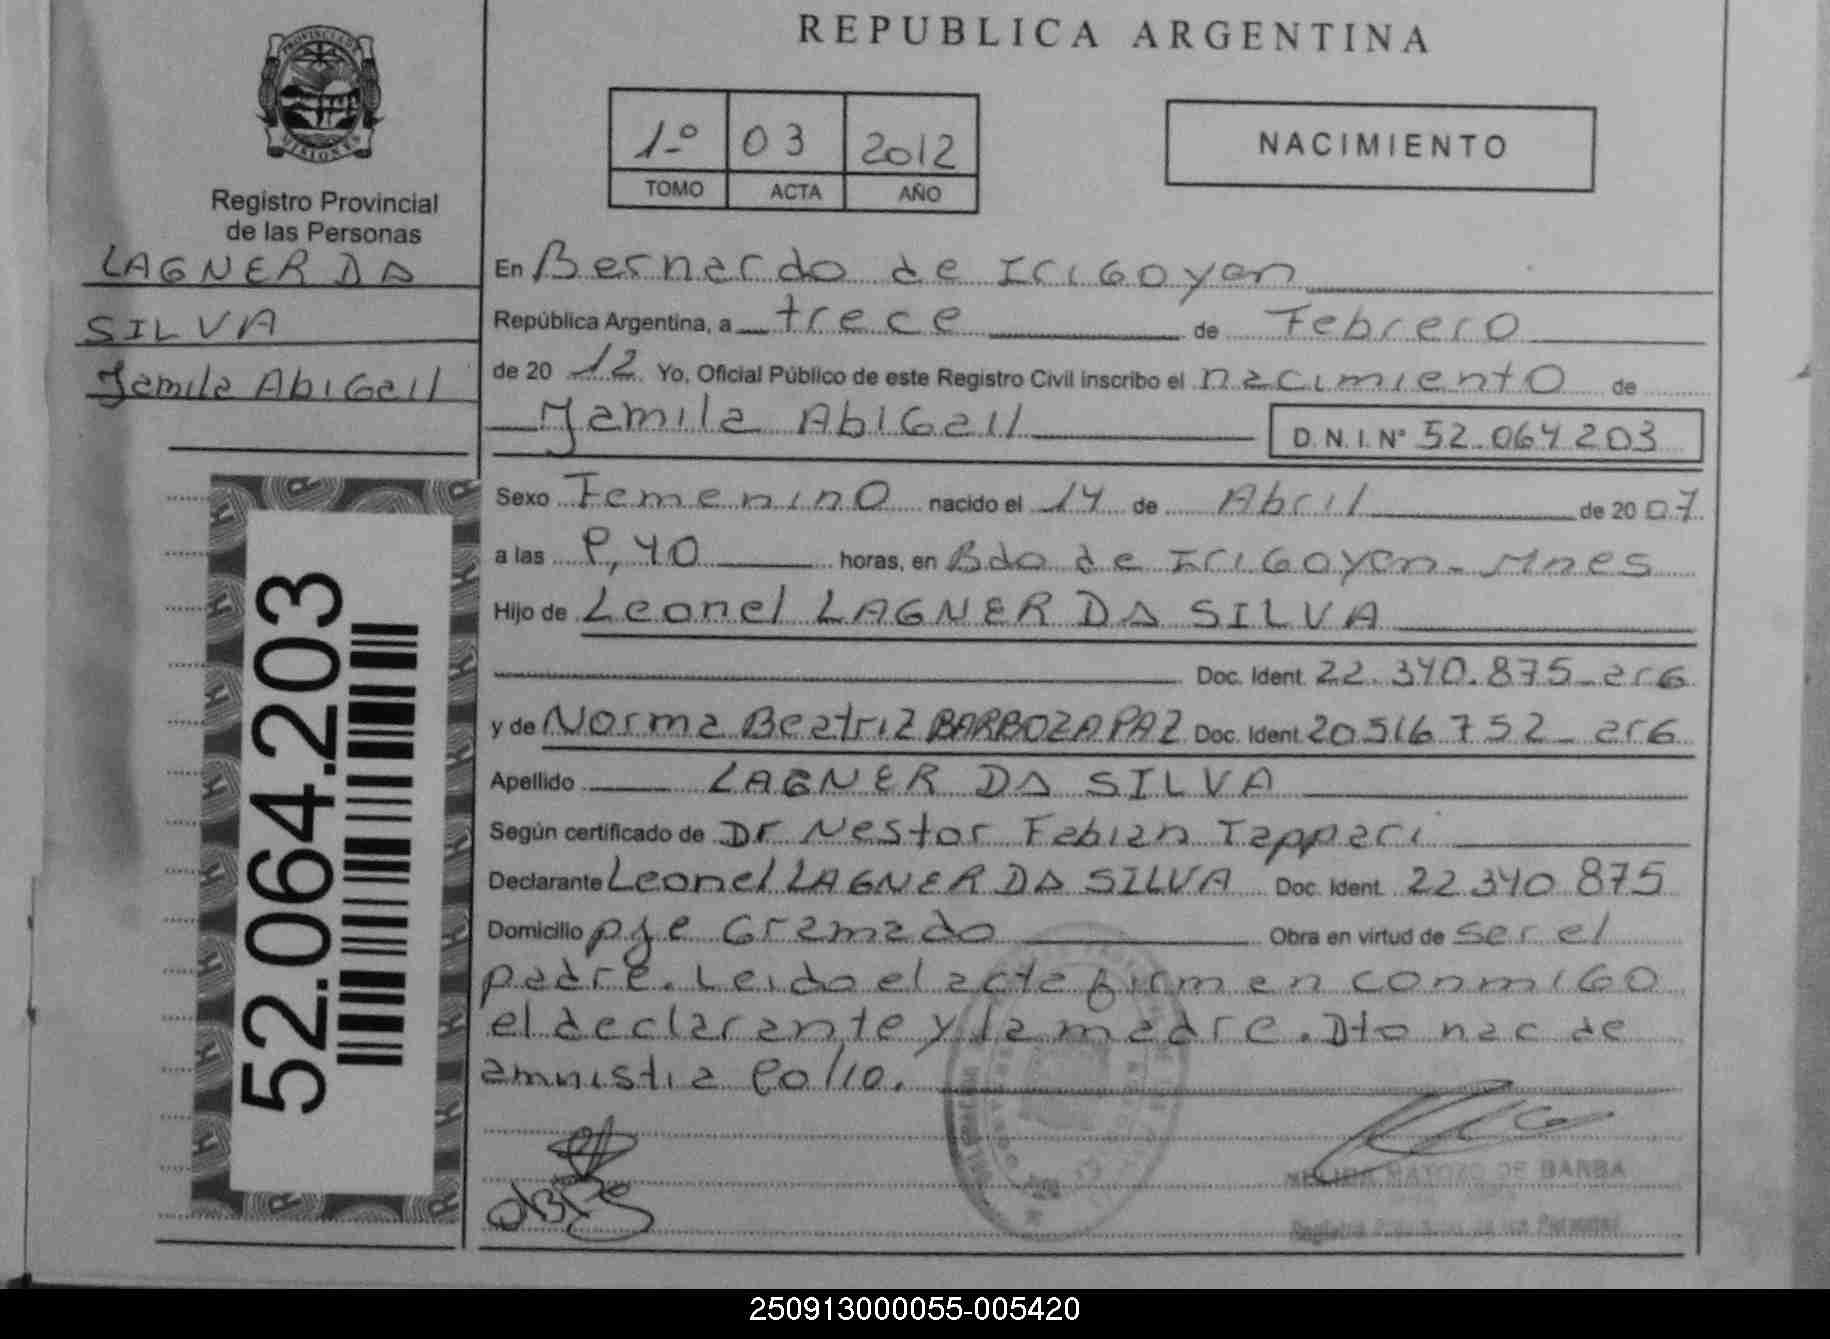 REPUBLICA ARGENTINA
PROVINCIA DE
MISIONES
Registro Provincial
de las Personas
LAGNER DA
SILVA
Jamila Abigail
52.064.203
1º 03 2012
TOMO ACTA AÑO
NACIMIENTO
En Bernardo de Irigoyen
República Argentina, a trece de Febrero
de 20 12 Yo, Oficial Público de este Registro Civil inscribo el nacimiento de
Jamila Abigail D.N.I. Nº 52.064203
Sexo Femenino nacido el 14 de Abril de 20 07
a las 8,40 horas, en Bdo de Irigoyen - Mnes
Hijo de Leonel LAGNER DA SILVA
Doc. Ident. 22.340.875 - arg
y de Norma Beatriz BARBOZA PAZ Doc. Ident. 20516752 - arg
Apellido LAGNER DA SILVA
Según certificado de Dr Nestor Fabian Tappari
Declarante Leonel LAGNER DA SILVA Doc. Ident. 22340875
Domicilio pje Gramado Obra en virtud de ser el
padre. Leido el acta firman conmigo
el declarante y la madre. Dto nac de
amnistia
MATOZO DE BARBA
Registro Provincial de las Personas
250913000055-005420